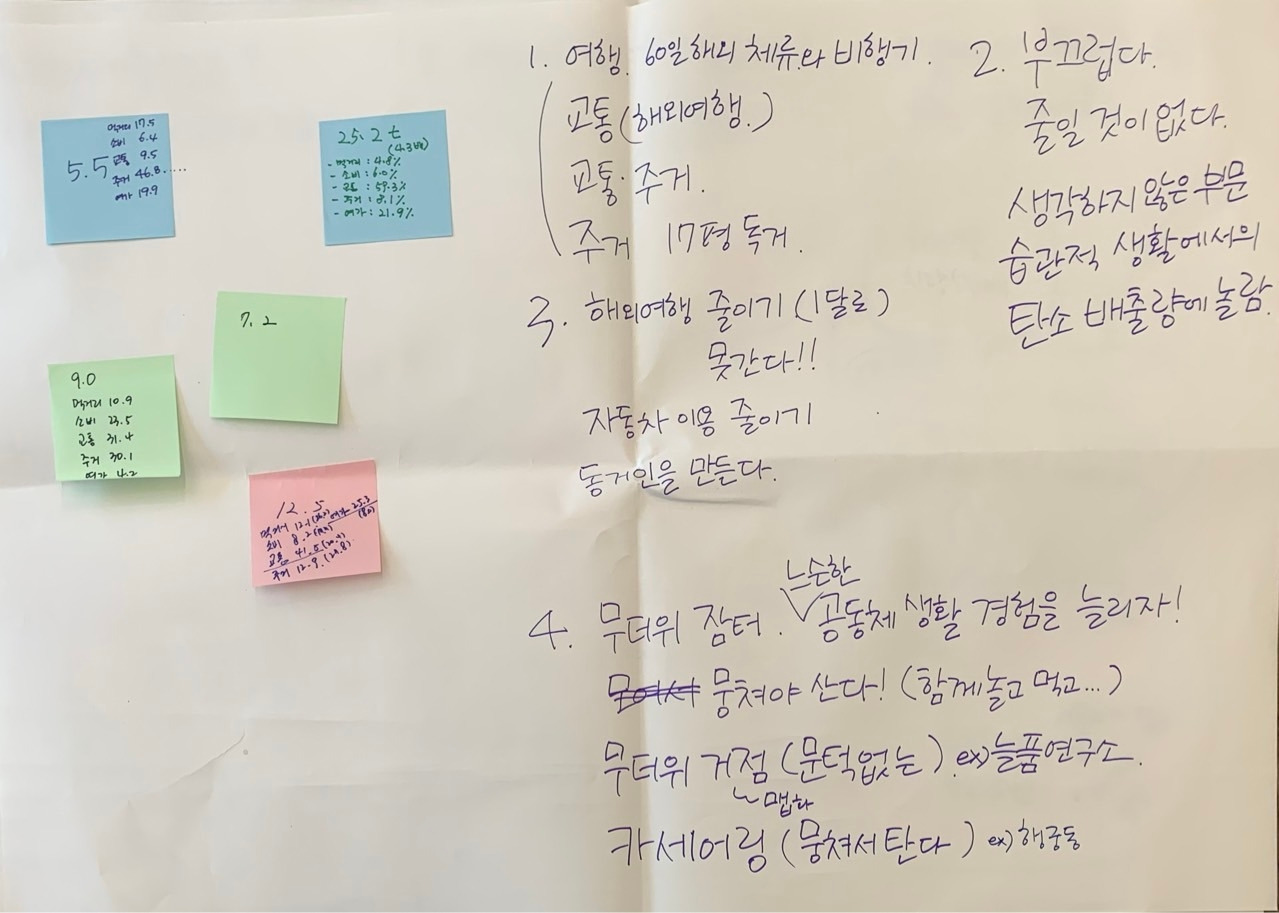 5.5
먹거리 17.5
소비 6.4
교통 9.5
주거 46.8....
여가 19.9
25.2 t
(4.3배)
- 먹거리 : 4.8%
- 소비 : 6.0%
- 교통 : 59.3%
- 주거 : 8.1%
- 여가 : 21.9%
7.2
9.0
먹거리 10.9
소비 23.5
교통 31.4
주거 30.1
여가 4.2
12.5
먹거리 12.1 여가 25.3
소비 8.2
교통 41.5
주거 12.9
1. 여행. 60일 해외 체류와 비행기.
교통(해외여행.)
교통·주거.
주거 17평 독거.
2. 부끄럽다.
줄일 것이 없다.
생각하지 않은 부문
습관적 생활에서의
탄소 배출량에 놀람.
3. 해외여행 줄이기 (1달로)
못간다!!
자동차 이용 줄이기
동거인을 만든다.
4. 무더위 잠터. 느슨한 공동체 생활 경험을 늘리자!
뭉쳐야 산다! (함께놀고 먹고...)
무더위 거점 (문턱없는) ex)늘품연구소.
맵화
카세어링 (뭉쳐서 탄다) ex)행궁동